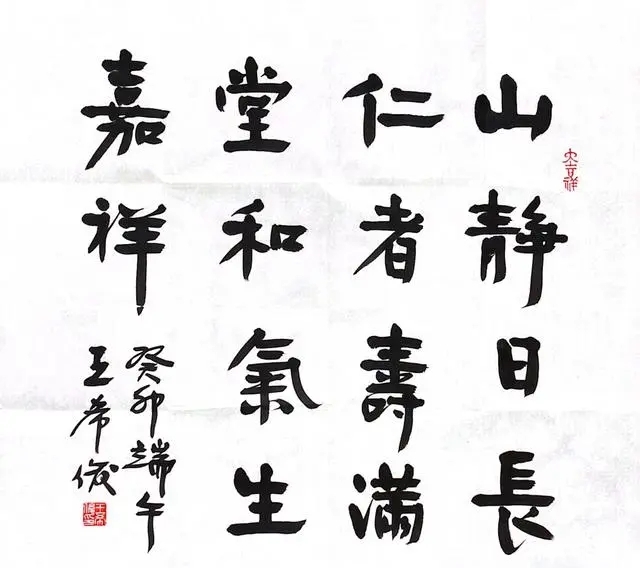 山靜日長
仁者壽滿
堂和氣生
嘉祥
癸卯端午
王希俊
大吉祥